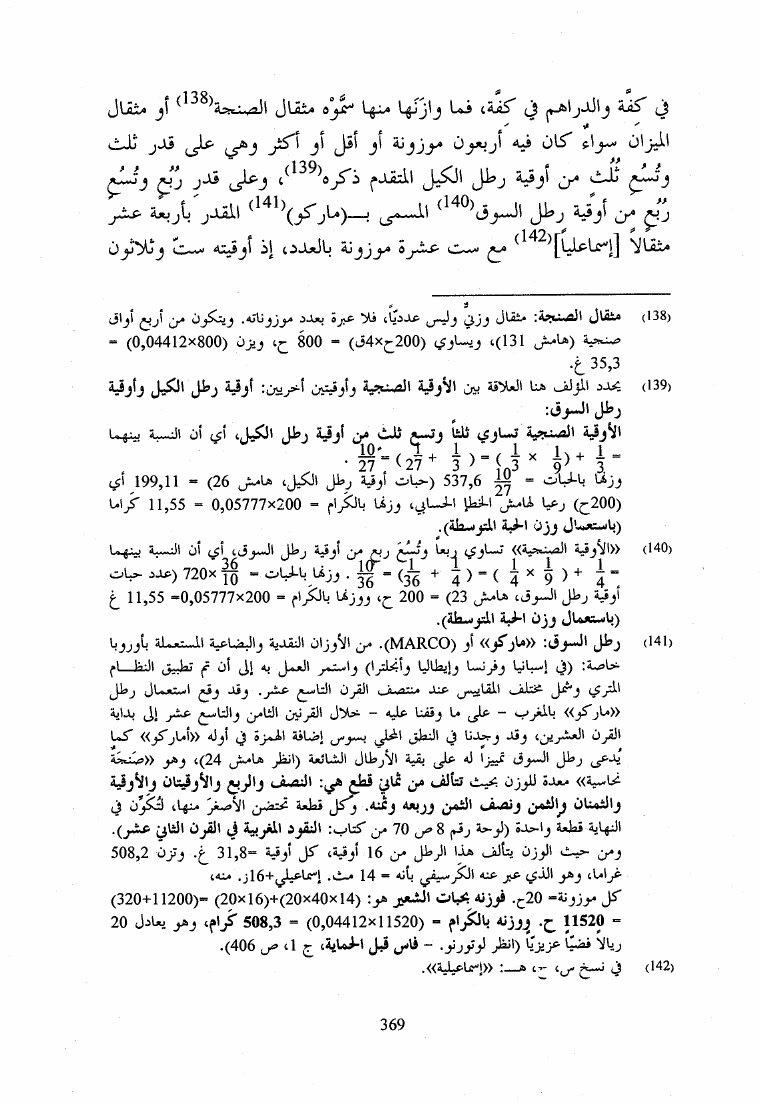 في كفَّة والدراهم في كفَّة، فما وازنَها منها سمَّوْه مثقال الصنجة(138) أو مثقال
الميزان سواءٌ كان فيه أربعون موزونة أو أقل أو أكثر وهي على قدر ثلث
وتُسُعِ ثُلُثٍ من أوقية رطل الكيل المتقدم ذكره(139)، وعلى قدرِ رُبُعٍ وتُسُعِ
رُبُعٍ من أوقية رطل السوق(140) المسمى بـ(ماركو)(141) المقدر بأربعة عشر
مثقالاً [إسماعلياً](142) مع ست عشرة موزونة بالعدد، إذ أوقيته ستّ وثلاثون
(138) مثقال الصنجة: مثقال وزنيٌّ وليس عدديّاً، فلا عبرة بعدد موزوناته. ويتكون من أربع أواق
صنجية (هامش 131)، ويساوي (200ح×4ق) = 800 ح، ويزن (800×0,04412) =
35,3 غ.
(139) يحدد المؤلف هنا العلاقة بين الأوقية الصنجية وأوقيتين أخريين: أوقية رطل الكيل وأوقية
رطل السوق:
الأوقية الصنجية تساوي ثلثاً وتسع ثلث من أوقية رطل الكيل، أي أن النسبة بينهما
= 1/3 + (1/9 × 1/3) = (1/3 + 1/27) = 10/27 .
وزنها بالحبات = 10/27 537,6 (حبات أوقية رطل الكيل، هامش 26) = 199,11 أي
(200ح) رعيا لهامش الخطإ الحسابي، وزنها بالكَرام = 200×0,05777 = 11,55 كَراما
(باستعمال وزن الحبة المتوسطة).
(140) «الأوقية الصنجية» تساوي ربعاً وتُسع ربع من أوقية رطل السوق، أي أن النسبة بينهما
= 1/4 + (1/9 × 1/4) = (1/4 + 1/36) = 10/36 . وزنها بالحبات = 36/10 ×720 (عدد حبات
أوقية رطل السوق، هامش 23) = 200 ح، ووزنها بالكَرام = 200×0,05777= 11,55 غ
(باستعمال وزن الحبة المتوسطة).
(141) رطل السوق: «ماركو» أو (MARCO). من الأوزان النقدية والبضاعية المستعملة بأوروبا
خاصة: (في إسبانيا وفرنسا وإيطاليا وأنجلترا) واستمر العمل به إلى أن تم تطبيق النظام
المتري وشمل مختلف المقاييس عند منتصف القرن التاسع عشر. وقد وقع استعمال رطل
«ماركو» بالمغرب - على ما وقفنا عليه - خلال القرنين الثامن والتاسع عشر إلى بداية
القرن العشرين، وقد وجدنا في النطق المحلي بسوس إضافة الهمزة في أوله «أماركو» كما
يُدعى رطل السوق تمييزا له على بقية الأرطال الشائعة (انظر هامش 24)، وهو «صنجَةٌ
نحاسية» معدة للوزن بحيث تتألف من ثماني قطع هي: النصف والربع والأوقيتان والأوقية
والثمنان والثمن ونصف الثمن وربعه وثمنه. وكل قطعة تحتضن الأصغرَ منها، لتُكوِّن في
النهاية قطعة واحدة (لوحة رقم 8 ص 70 من كتاب: النقود المغربية في القرن الثاني عشر).
ومن حيث الوزن يتألف هذا الرطل من 16 أوقية، كل أوقية =31,8 غ. وتزن 508,2
غراما، وهو الذي عبر عنه الكَرسيفي بأنه = 14 مث. إسماعيلي+16ز. منه،
كل موزونة= 20ح. فوزنه بحبات الشعير هو: (14×40×20)+(16×20) =(11200+320)
= 11520 ح. ووزنه بالكَرام = (11520×0,04412) = 508,3 كَرام، وهو يعادل 20
ريالاً فضيّاً عزيزيّاً (انظر لوتورنو. - فاس قبل الحماية، ج 1، ص 406).
(142) في نسخ س، ح، هـ: «إسماعيلية».
369